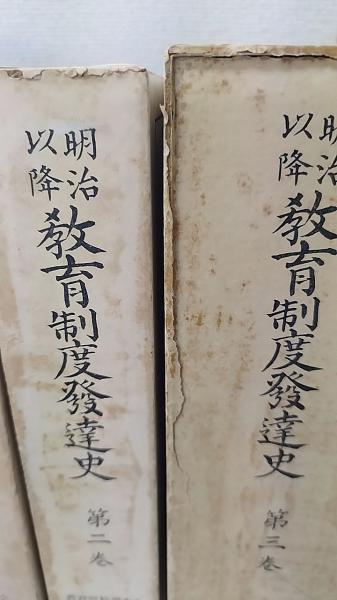 明治
以降
教育制度發達史
第二巻
明治
以降
教育制度發達史
第三巻